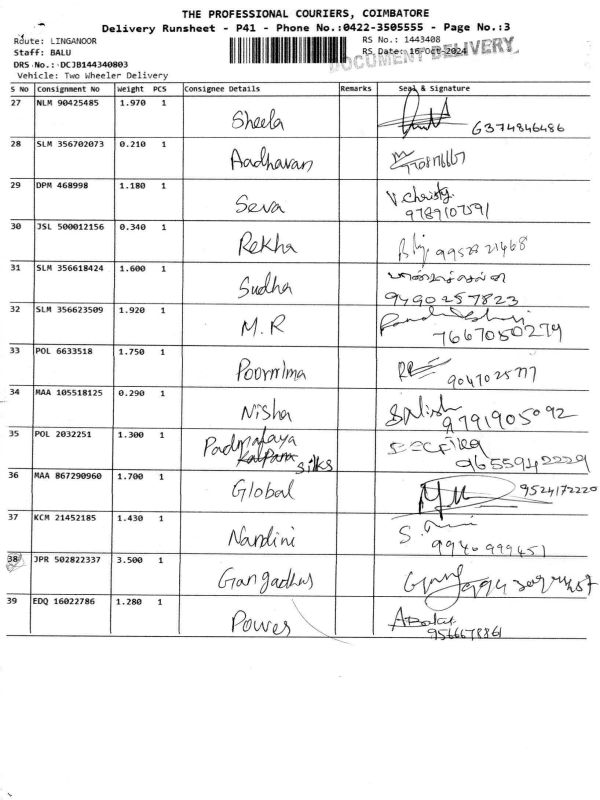 THE PROFESSIONAL COURIERS, COIMBATORE
Delivery Runsheet - P41 - Phone No.:0422-3505555 - Page No.:3
Route: LINGANOOR RS No.: 1443408
Staff: BALU RS Date: 16-Oct-2024
DOCUMENT DELIVERY
DRS No.: DCJB144340803
Vehicle: Two Wheeler Delivery
S No Consignment No Weight PCS Consignee Details Remarks Seal & Signature
27 NLM 90425485 1.970 1 Sheela 6374846486
28 SLM 356702073 0.210 1 Aadhavan
29 DPM 468998 1.180 1 Seva V.Christy
9789107591
30 JSL 500012156 0.340 1 Rekha
31 SLM 356618424 1.600 1 Sudha
9490257823
32 SLM 356623509 1.920 1 M.R
7667050279
33 POL 6633518 1.750 1 Poornima
34 MAA 105518125 0.290 1 Nisha
9791905092
35 POL 2032251 1.300 1 silks
9655942229
36 MAA 867290960 1.700 1 Global 9524172220
37 KCM 21452185 1.430 1 Nandini
9946999451
38 JPR 502822337 3.500 1
39 EDQ 16022786 1.280 1 Power
9566678861